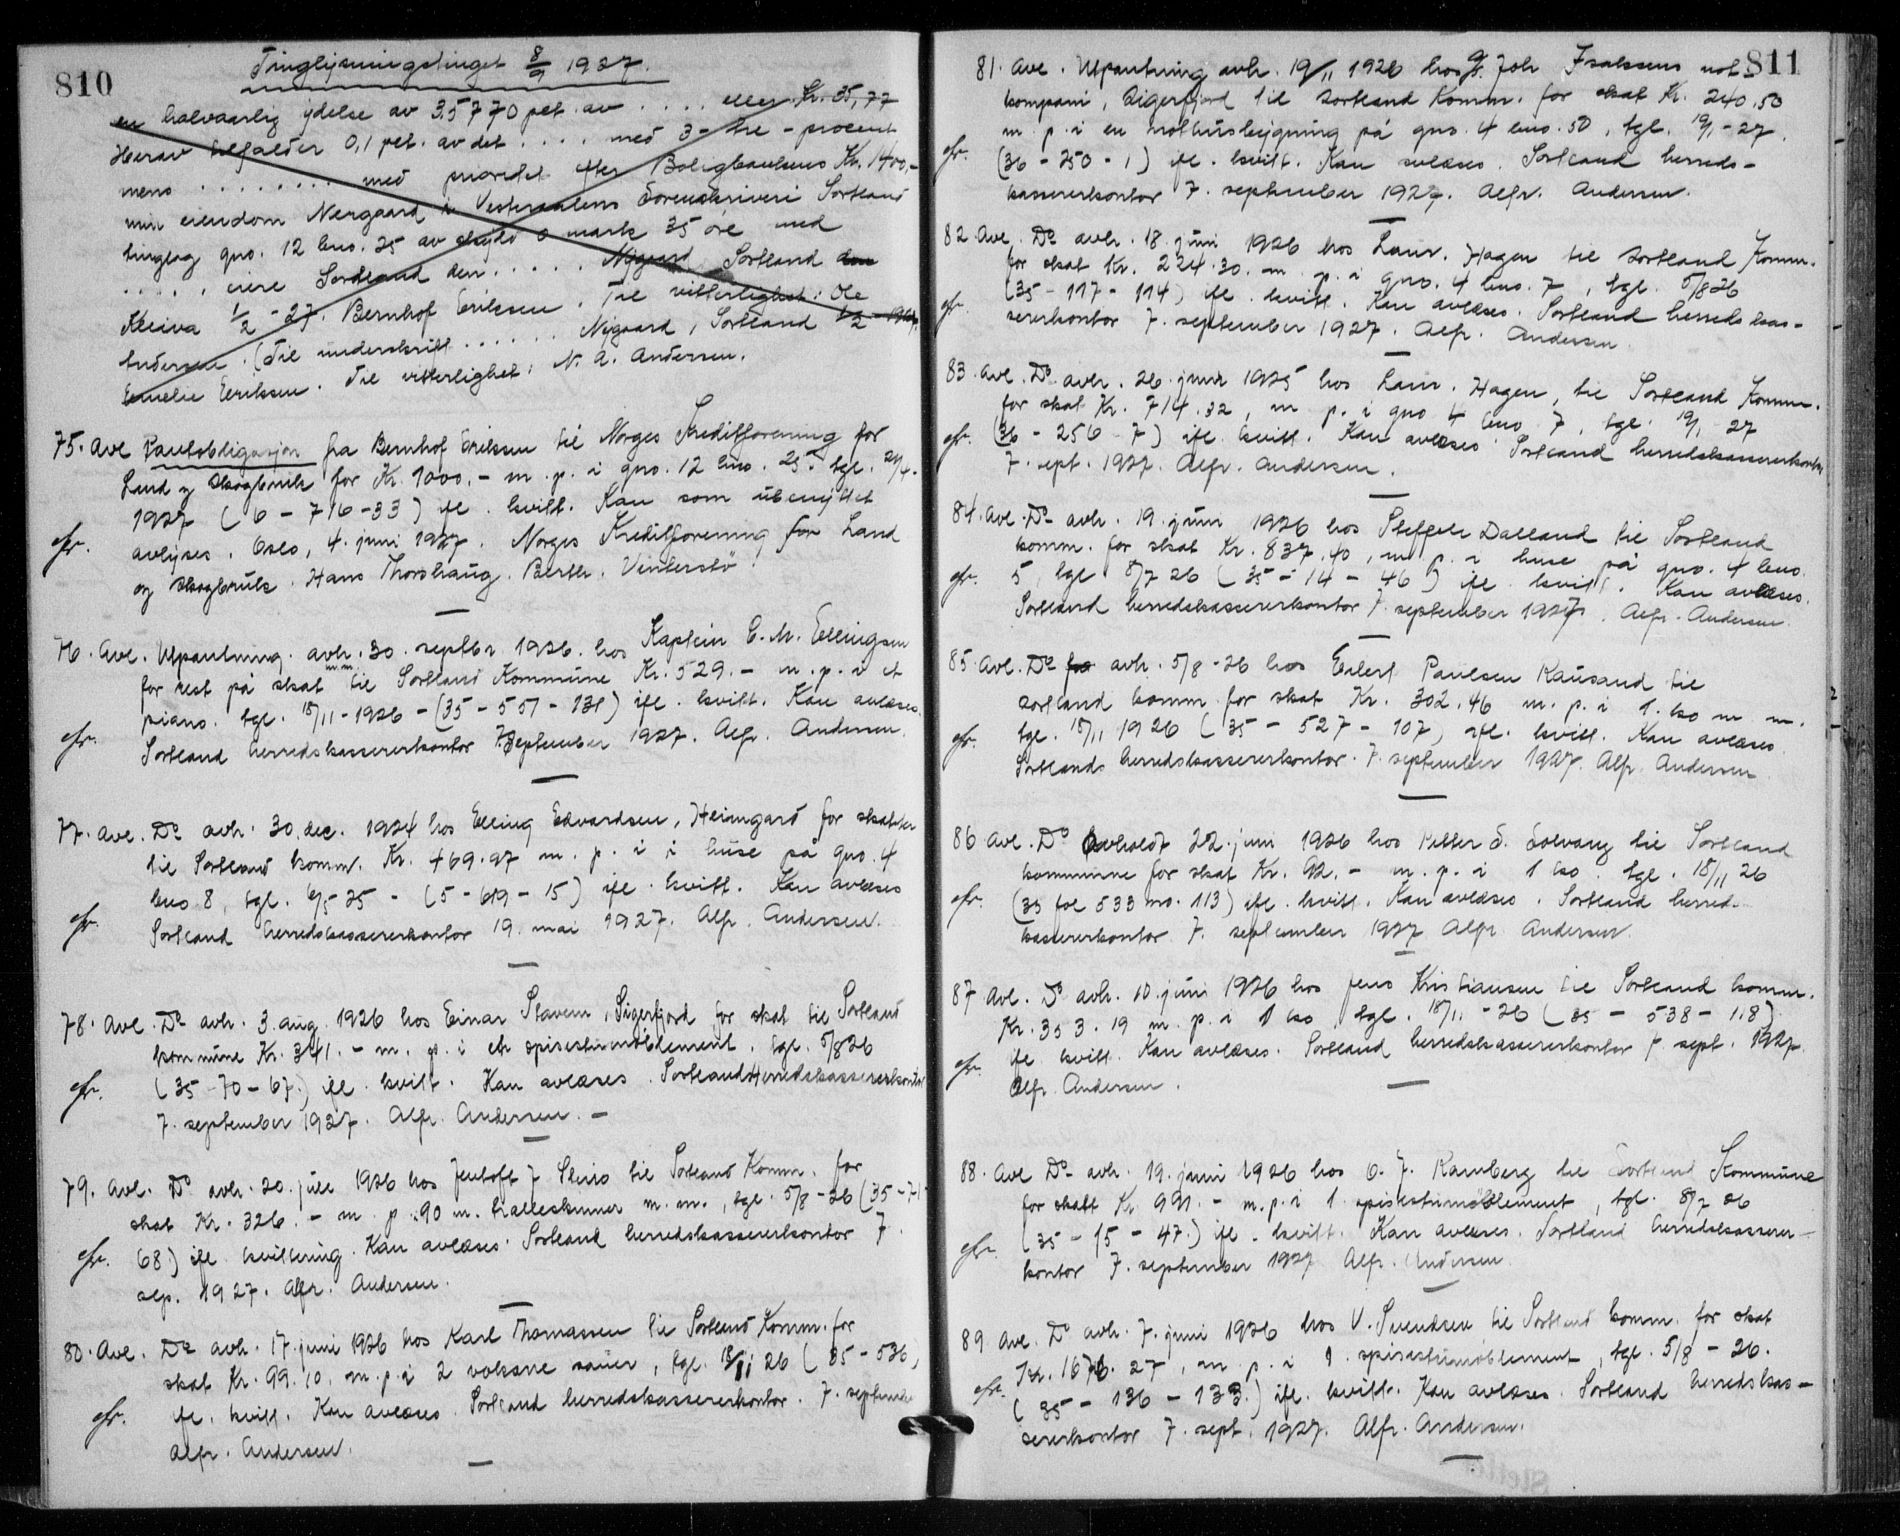 810
Tinglysningstinget 8/9 1927.
en halvaarlig ydelse av 3.5770 pct. av .... eller Kr. 35,77
Herav tilfalder 0,1 pct. av det .... med 3-tre-procent
mens ........ med prioritet efter Boligbankens Kr. 1400,-
min eiendom Nergaard i Vesteraalens Sorenskriveri Sortland
tinglag gno. 12 bno. 25 av skyld 0 mark 35 øre med
....., eiere Sortland den ..... Nygaard, Sortland den
Kleiva 1/2-27. Bernhof Eriksen. Til vitterlighet: Ole
Andersen. (Til underskrift ...... Nygaard, Sortland 1/2 1927.
Emelie Eriksen. Til vitterlighet: N. A. Andersen.
75. Avl. Pantobligasjon fra Bernhof Eriksen til Norges Kreditforening for
Land og Skogbruk for Kr. 1000.- m. p. i gno. 12 bno. 25. tgl. 21/4.
1927 (6 - 716-33) ifl. kvitt. Kan som ubenyttet
avlyses. Oslo, 4. juni 1927. Norges Kreditforening for Land
og Skogbruk. Hans Thorshaug. Berth. Vinterstø.
76. Avl. Utpantning avh. 30. septbr. 1926. hos Kaptein C. M. Ellingsen
for rest på skat m.m. til Sortland Kommune Kr. 529.- m. p. i et
piano. tgl. 18/11-1926 - (35 - 551 - 131) ifl. kvitt. Kan avlæses.
Sortland herredskassererkontor 7. september 1927. Alfr. Andersen.
77. Avl. Do avh. 30. dec. 1924 hos Elling Edvardsen, Heimgård for skatter
til Sortland komm. Kr. 469.97 m. p. i i huse på gno. 4
bno 8, tgl. 6/5-25 - (5 - 619 - 15) ifl. kvitt. Kan avlæses
Sortland herredskassererkontor 19. mai 1927. Alfr. Andersen.
78. Avl. Do avh. 3. aug. 1926 hos Einar Stavem, Sigerfjord for skat til Sortland
kommune Kr. 341.- m. p. i et spisestumøblement. tgl. 5/8 26
(35-70-67.) ifl. kvitt. Kan avlæses. Sortland Herredskassererkontor
7. september 1927. Alfr. Andersen. -
79. Avl. Do avh. 20. juli 1926 hos Jentoft J. Steiro til Sortland Komm. for
skat Kr. 326.- m. p. i 90 m. tralleskinner m. m., tgl. 5/8-26 (35-71-
68) ifl. kvittering. Kan avlæses. Sortland herredskassererkontor 7.
sep. 1927. Alfr. Andersen.
80. Avl. Do avh. 17. juni 1926 hos Karl Thomassen til Sortland Komm. for
skat Kr. 99.10. m. p. i 2 voksne sauer, tgl. 18/11 26 (35 - 536,
ifl. kvitt. Kan avlæses. Sortland herredskassererkontor. 7. september
Alfr. Andersen.
811
81. Avl. Utpantning avh. 19/11 1926 hos Joh Isaksens not-
kompani, Sigerfjord til Sortland Komm. for skat Kr. 240,50
m. p. i en notbusbygning på gno. 4 bno. 50, tgl. 19/1-27.
(36 - 250 - 1) ifl. kvitt. Kan avlæses. Sortland herreds-
kassererkontor 7. september 1927. Alfr. Andersen.
82 Avl. Do avh. 18. juni 1926 hos Laur. Hagen til Sortland Komm.
for skat Kr. 224.30. m. p. i gno. 4 bno. 7, tgl. 5/8 26
(35 - 117 - 114) ifl. kvitt. Kan avlæses. Sortland herredskas-
sererkontor 7. september 1927. Alfr. Andersen.
83. Avl. Do avh. 26. juni 1925 hos Laur. Hagen, til Sortland Komm.
for skat Kr. 714.32, m. p. i gno 4 bno 7, tgl. 19/1 27
(36 - 256 - 7) ifl. kvitt. Kan avlæses Sortland herredskassererkontor
7. sept. 1927. Alfr. Andersen.
84. Avl. Do avh. 19. juni 1926 hos Steffen Dalland til Sortland
komm. for skat Kr. 837.40, m. p. i huse på gno. 4 bno.
5, tgl. 8/7 26 (35 - 14 - 46) ifl. kvitt. Kan avlæses.
Sortland herredskassererkontor 7. september 1927. Alfr. Andersen.
85. Avl. Do avh. 5/8-26 hos Eilert Paulsen Kausand til
Sortland komm. for skat Kr. 302.46 m. p. i 1. ko m m.
tgl. 18/11 1926 (35 - 527 - 107) ifl. kvitt. Kan avlæses.
Sortlands herredskassererkontor. 7. september 1927. Alfr. Andersen.
86 Avl. Do Avholdt 22. juni 1926 hos Petter S. Solvang til Sortland
kommune for skat Kr. 92.- m. p. i 1 ko. tgl. 18/11 26
(35 fol 533 no. 113) ifl. kvitt. Kan avlæses. Sortland herred-
kassererkontor 7. september 1927 Alfr. Andersen.
87 Avl. Do avh. 10. juni 1926 hos Jens Kristiansen til Sortland komm.
Kr. 353.19 m. p. i 1 ko, tgl. 18/11-26 (35 - 538 - 118)
ifl. kvitt. Kan avlæses. Sortland herredskassererkontor 7. sept. 1927.
Alfr. Andersen.
88. Avl Do avh. 19. juni 1926 hos O. J. Ramberg til Sortland Kommune
for skatt Kr. 991.- m. p. i 1. spisestumøblement, tgl. 8/7 26
(35 - 15 - 47.) ifl. kvitt. Kan avlæses. Sortland herredskasserer-
kontor 7. september 1927 Alfr. Andersen.
89 Avl. Do avh. 7. juni 1926 hos V. Svendsen til Sortland komm. for skat
Kr. 1676.27, m. p. i 1. spisestumøblement, tgl. 5/8-26.
(35 - 136 - 133.) ifl. kvitt. Kan avlæses. Sortland herredskas-
sererkontor 7. sept. 1927. Alfr. Andersen.